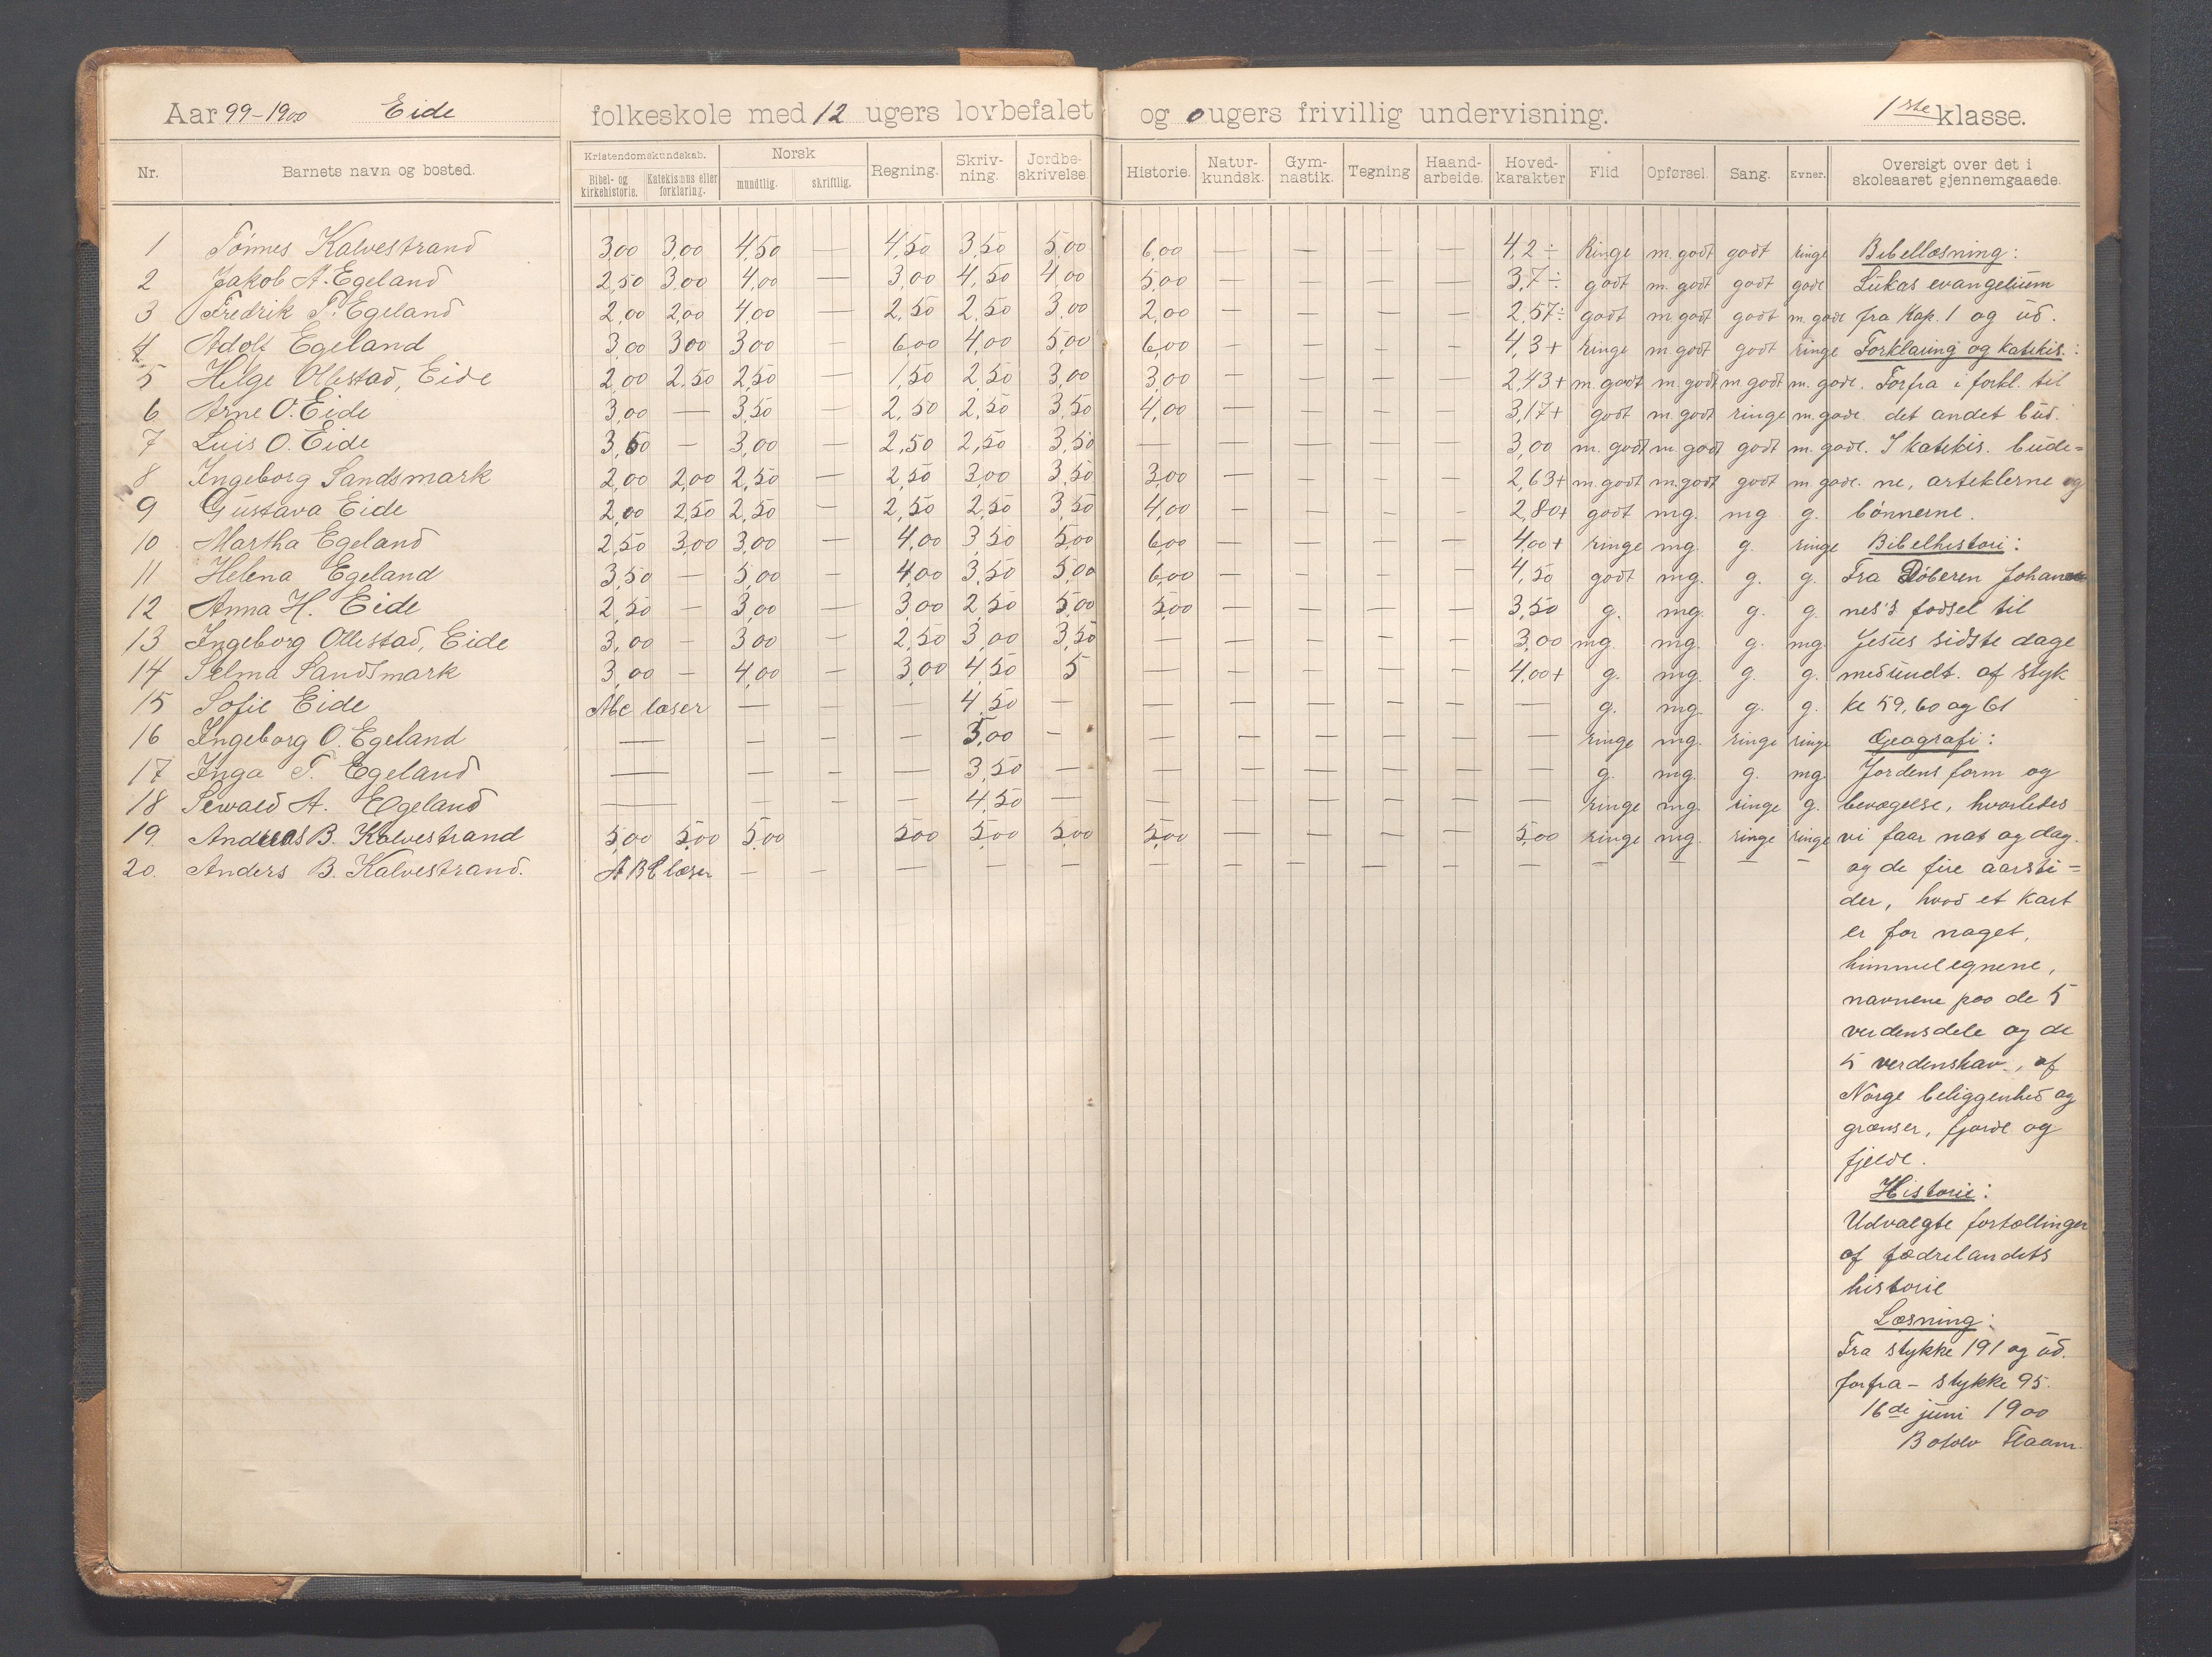 Aar 99-1900 Eide folkeskole med 12 ugers lovbefalet og 0 ugers frivillig undervisning. 1ste klasse.
Nr. Barnets navn og bosted. Kristendomskundskab. Bibel- og kirkehistorie. Katekismus eller forklaring. Norsk mundtlig. skriftlig. Regning. Skriv-ning. Jordbe-skrivelse. Historie. Natur-kundsk. Gym-nastik. Tegning Haand-arbeide. Hoved-karakter Flid Opførsel. Sang. Evner. Oversigt over det i skoleaaret gjennemgaaede.
1 Tönnes Kalvestrand 3,00 3,00 4,50 — 4,50 3,50 5,00 6,00 — — — — 4,2 ÷ Ringe m. godt godt ringe Bibellæsning:
2 Jakob A. Egeland 2,50 3,00 4,00 — 3,00 4,50 4,00 5,00 — — — — 3,7 ÷ godt m. godt godt gode Lukas evangelium
3 Fredrik T. Egeland 2,00 2,00 4,00 — 2,50 2,50 3,00 2,00 — — — — 2,57 ÷ godt m godt godt m gode fra Kap. 1 og ud.
4 Adolf Egeland 3,00 3,00 3,00 — 6,00 4,00 5,00 6,00 — — — — 4,3 + ringe m godt godt ringe Forklaring og katekis.:
5 Helge Ollestad, Eide 2,00 2,50 2,50 — 1,50 2,50 3,00 3,00 — — — — 2,43 + m. godt m. godt m godt m. gode. Forfra i forkl. til
6 Arne O. Eide 3,00 — 3,50 — 2,50 2,50 3,50 4,00 — — — — 3,17 + godt m. godt ringe m. gode. det andet bud.
7 Luis O. Eide 3,50 — 3,00 — 2,50 2,50 3,50 — — — — — 3,00 m. godt m. godt godt m. gode. I katekis. bude=
8 Ingeborg Sandsmark 2,00 2,00 2,50 — 2,50 3,00 3,50 3,00 — — — — 2,63 + m. godt m. godt godt m gode. ne, arteklerne og
9 Gustava Eide 2,00 2,50 2,50 — 2,50 2,50 3,50 4,00 — — — — 2,80 + godt mg. mg g. bönnerne.
10 Martha Egeland 2,50 3,00 3,00 — 4,00 3,50 5,00 6,00 — — — — 4,00 + ringe mg. g. ringe Bibelhistori:
11 Helena Egeland 3,50 — 5,00 — 4,00 3,50 5,00 6,00 — — — — 4,50 godt mg. g. g. Fra Döberen Johan
12 Anna H. Eide 2,50 — 3,00 — 3,00 2,50 5,00 5,00 — — — — 3,50 g. mg. g. g. nes's fødsel til
13 Ingeborg Ollestad, Eide 3,00 — 3,00 — 2,50 3,00 3,50 — — — — — 3,00 mg. mg. g. mg. Jesus sidste dage
14 Selma Sandsmark 3,00 — 4,00 — 3,00 4,50 5 — — — — — 4,00 + g. mg. g. g. medundt. af styk
15 Sofie Eide Abc læser — — — 4,50 — — — — — — — g. mg. g. g. ke 59, 60 og 61
16 Ingeborg O. Egeland — — — — 5,00 — — — — — — — ringe mg. ringe ringe Geografi:
17 Inga T. Egeland — — — — 3,50 — — — — — — — g. mg. g. mg. Jordens form og
18 Sewald A. Egeland — — — — 4,50 — — — — — — — ringe mg. ringe g. bevægelse, hvorledes
19. Andreas B. Kalvestrand 5,00 5,00 5,00 5,00 5,00 5,00 5,00 — — — — 5,00 ringe mg. ringe ringe vi faar nat og dag.
20. Anders B. Kalvestrand. ABC læser — — — — — — — — — — — — — — — og de fire aarsti=
der, hvad et kart
er for noget,
himmelegnene,
navnene paa de 5
verdensdele og de
5 verdenshav., af
Norge beliggenhed og
grænser, fjorde og
fjelde.
Historie:
Udvalgte fortællinger
af fædrelandets
historie
Læsning:
Fra stykke 191 og ud.
forfra - stykke 95.
16de juni 1900
Botolv Flaam.